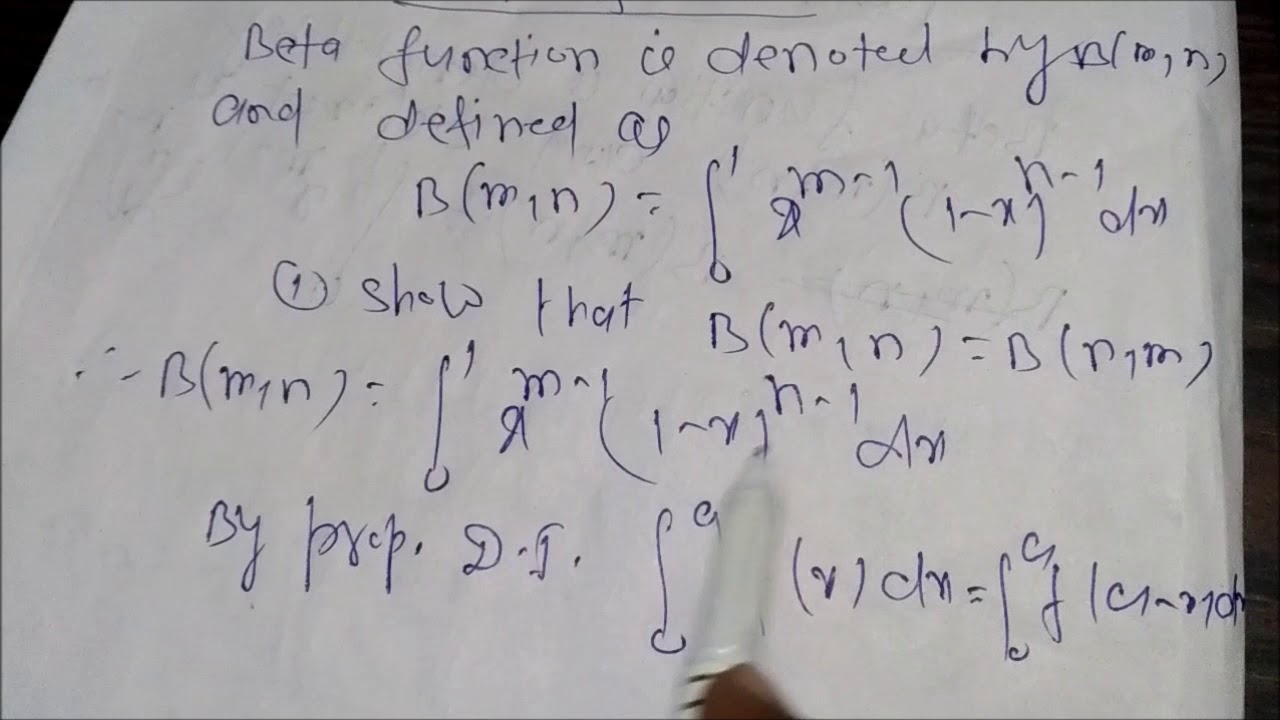 Beta function is denoted by B(m,n)
and defined as
B(m,n) = ∫₀¹ x^(m-1) (1-x)^(n-1) dx
① show that B(m,n) = B(n,m)
∴ B(m,n) = ∫₀¹ x^(m-1) (1-x)^(n-1) dx
By prop. D.I. ∫₀ᵃ (x) dx = ∫₀ᵃ f(a-x) dx